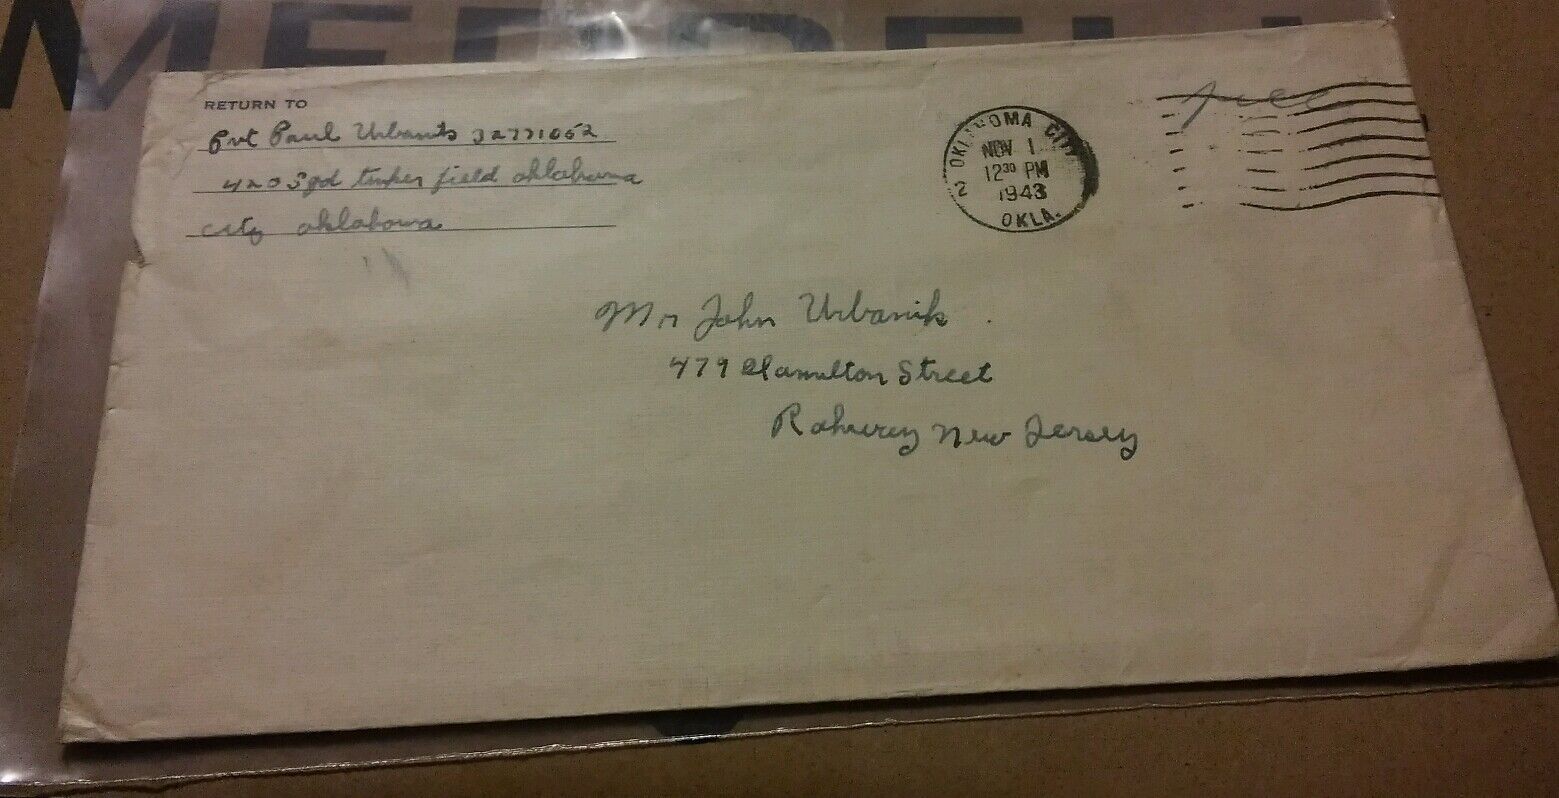 RETURN TO
Pvt Paul Urbanik 32771052
420 Sqd tinker field oklahoma
city oklahoma
2 OKLAHOMA CITY
NOV 1
12 30 PM
1943
OKLA.
free
Mr John Urbanik
479 Hamilton Street
Rahway New Jersey